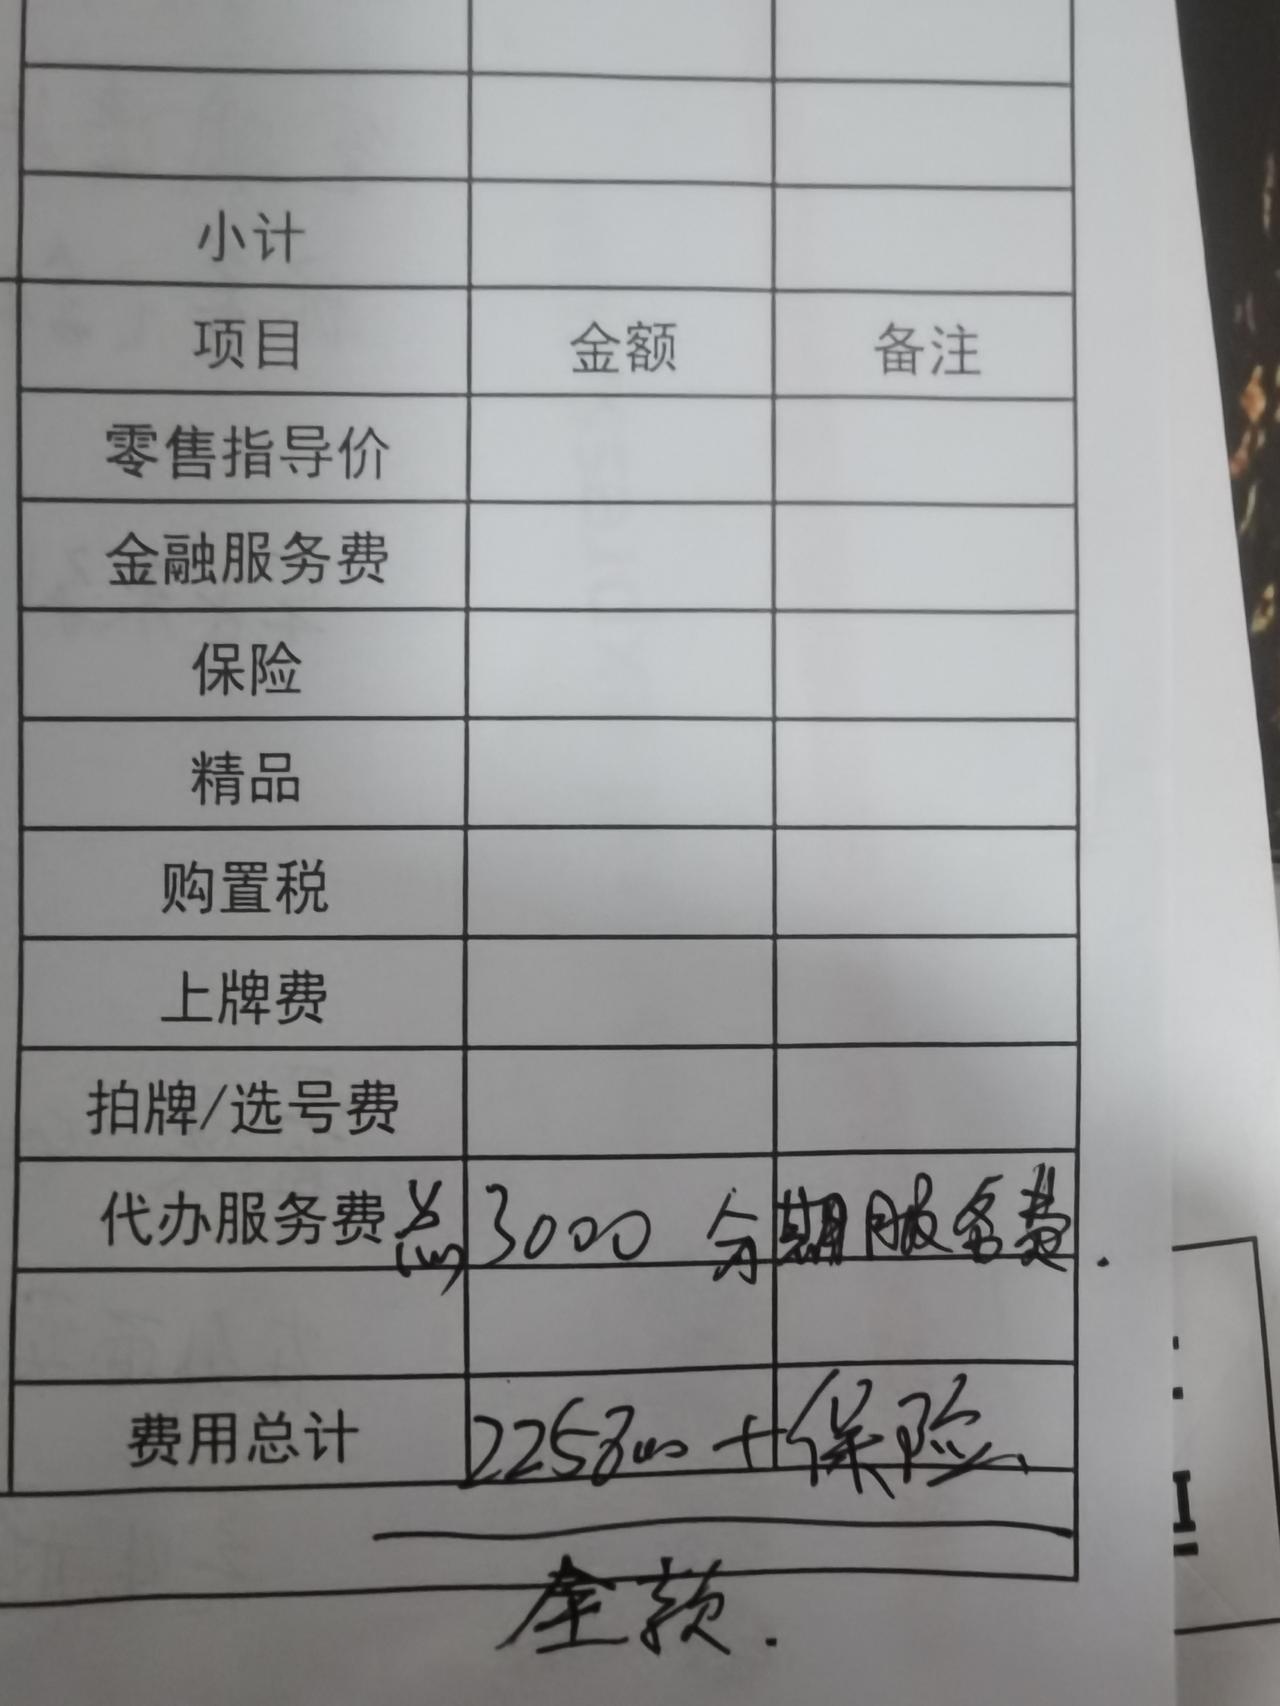 小计
项目 金额 备注
零售指导价
金融服务费
保险
精品
购置税
上牌费
拍牌/选号费
代办服务费 3000 分期服务费.
费用总计 225800 + 保险
全款.